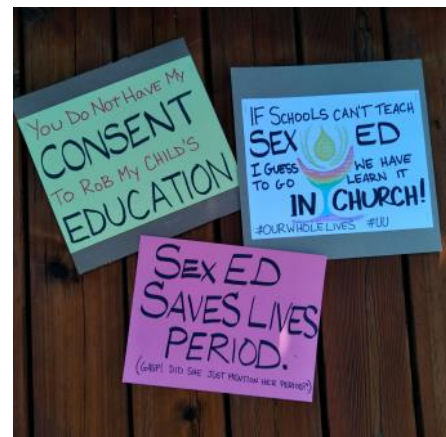 YOU DO NOT HAVE MY
CONSENT
TO ROB MY CHILD'S
EDUCATION
IF SCHOOLS CAN'T TEACH
SEX ED
I GUESS WE HAVE
TO GO LEARN IT
IN CHURCH!
#OURWHOLELIVES #UU
SEX ED
SAVES LIVES
PERIOD.
(GASP! DID SHE JUST MENTION HER PERIOD?!)